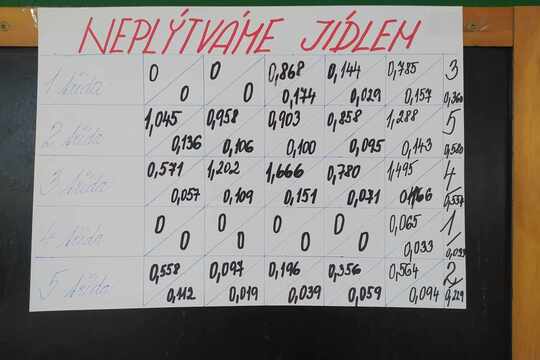 NEPLÝTVÁME JÍDLEM
1 třída 0 0 0,868 0,144 0,785 3
0 0 0,174 0,029 0,157 0,360
2 třída 1,045 0,958 0,903 0,858 1,288 5
0,136 0,106 0,100 0,095 0,143
3 třída 0,571 1,202 1,666 0,780 1,495 4
0,057 0,109 0,151 0,071 0,557
4 třída 0 0 0 0 0,065 1
0 0 0 0 0,033 0,033
5 třída 0,558 0,097 0,196 0,356 0,564 2
0,112 0,019 0,039 0,059 0,094 0,229